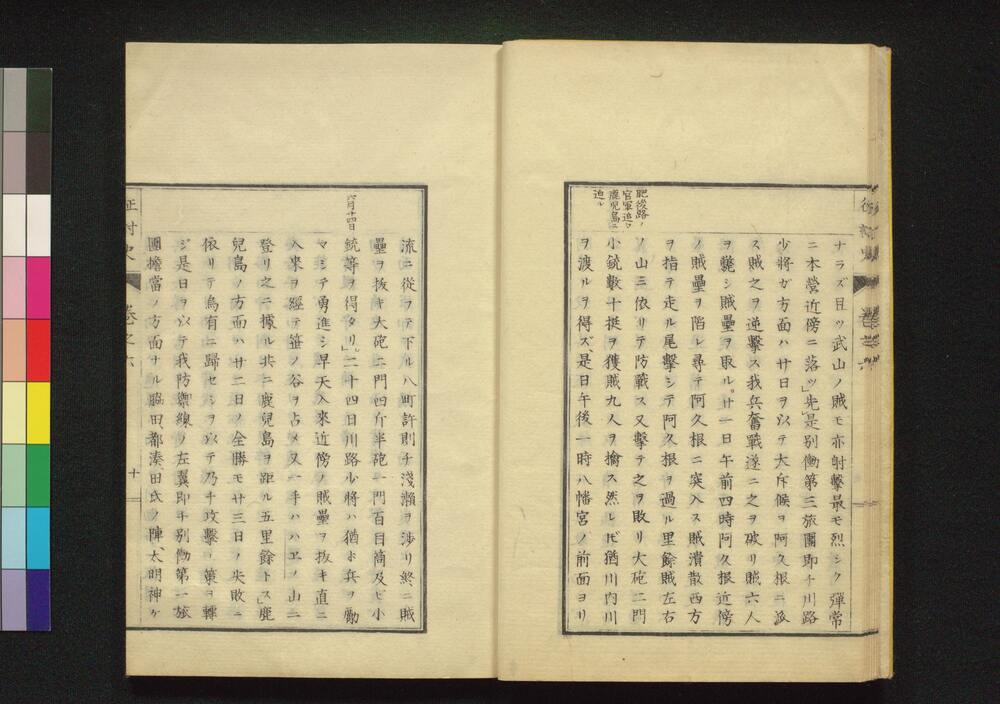 肥後路ノ
官軍迫テ
鹿児島ニ
迫ル
ナラズ且ツ武山ノ賊モ亦射擊最モ烈シク彈常
ニ本營近傍ニ落ツ」先是別働第三旅團即チ川路
少將ガ方面ハ廿日ヲ以テ大斥候ヲ阿久根ニ派
ス賊之ヲ逆擊ス我兵奮戰遂ニ之ヲ破リ賊六人
ヲ斃シ賊壘ヲ取ル」廿一日午前四時阿久根近傍
ノ賊壘ヲ陷レ尋テ阿久根ニ突入ス賊潰散西方
ヲ指テ走ル尾擊シテ阿久根ヲ過ル里餘賊左右
ノ山ニ依リテ防戰ス又擊テ之ヲ敗リ大砲二門
小銃數十挺ヲ獲賊九人ヲ擒ス然レ𪜈猶川内川
ヲ渡ルヲ得ズ是日午後一時八幡宮ノ前面ヨリ
六月廿四日
流ニ從ヲテ下ル八町許則チ淺瀨ヲ渉リ終ニ賊
壘ヲ抜キ大砲二門四斤半砲一門百目筒及ビ小
銃等ヲ得タリ」二十四日川路少將ハ猶ホ兵ヲ勵
マシテ勇進シ早天入來近傍ノ賊壘ヲ抜キ直ニ
入來ヲ經テ笹ノ谷ヲ占メ又一手ハハヱノ山ニ
登リ之ニ據ル共ニ鹿兒島ヲ距ル五里餘トス」鹿
兒島ノ方面ハ廿二日ノ全勝モ廿三日ノ失敗ニ
依リテ烏有ニ歸セシヲ以テ乃チ攻擊ノ策ヲ轉
ジ是日ヲ以テ我防禦線ノ左翼即チ別働第一旅
團擔當ノ方面ナル脇田、都湊、田氏ノ陣、大明神ケ
征討史
卷之六
十